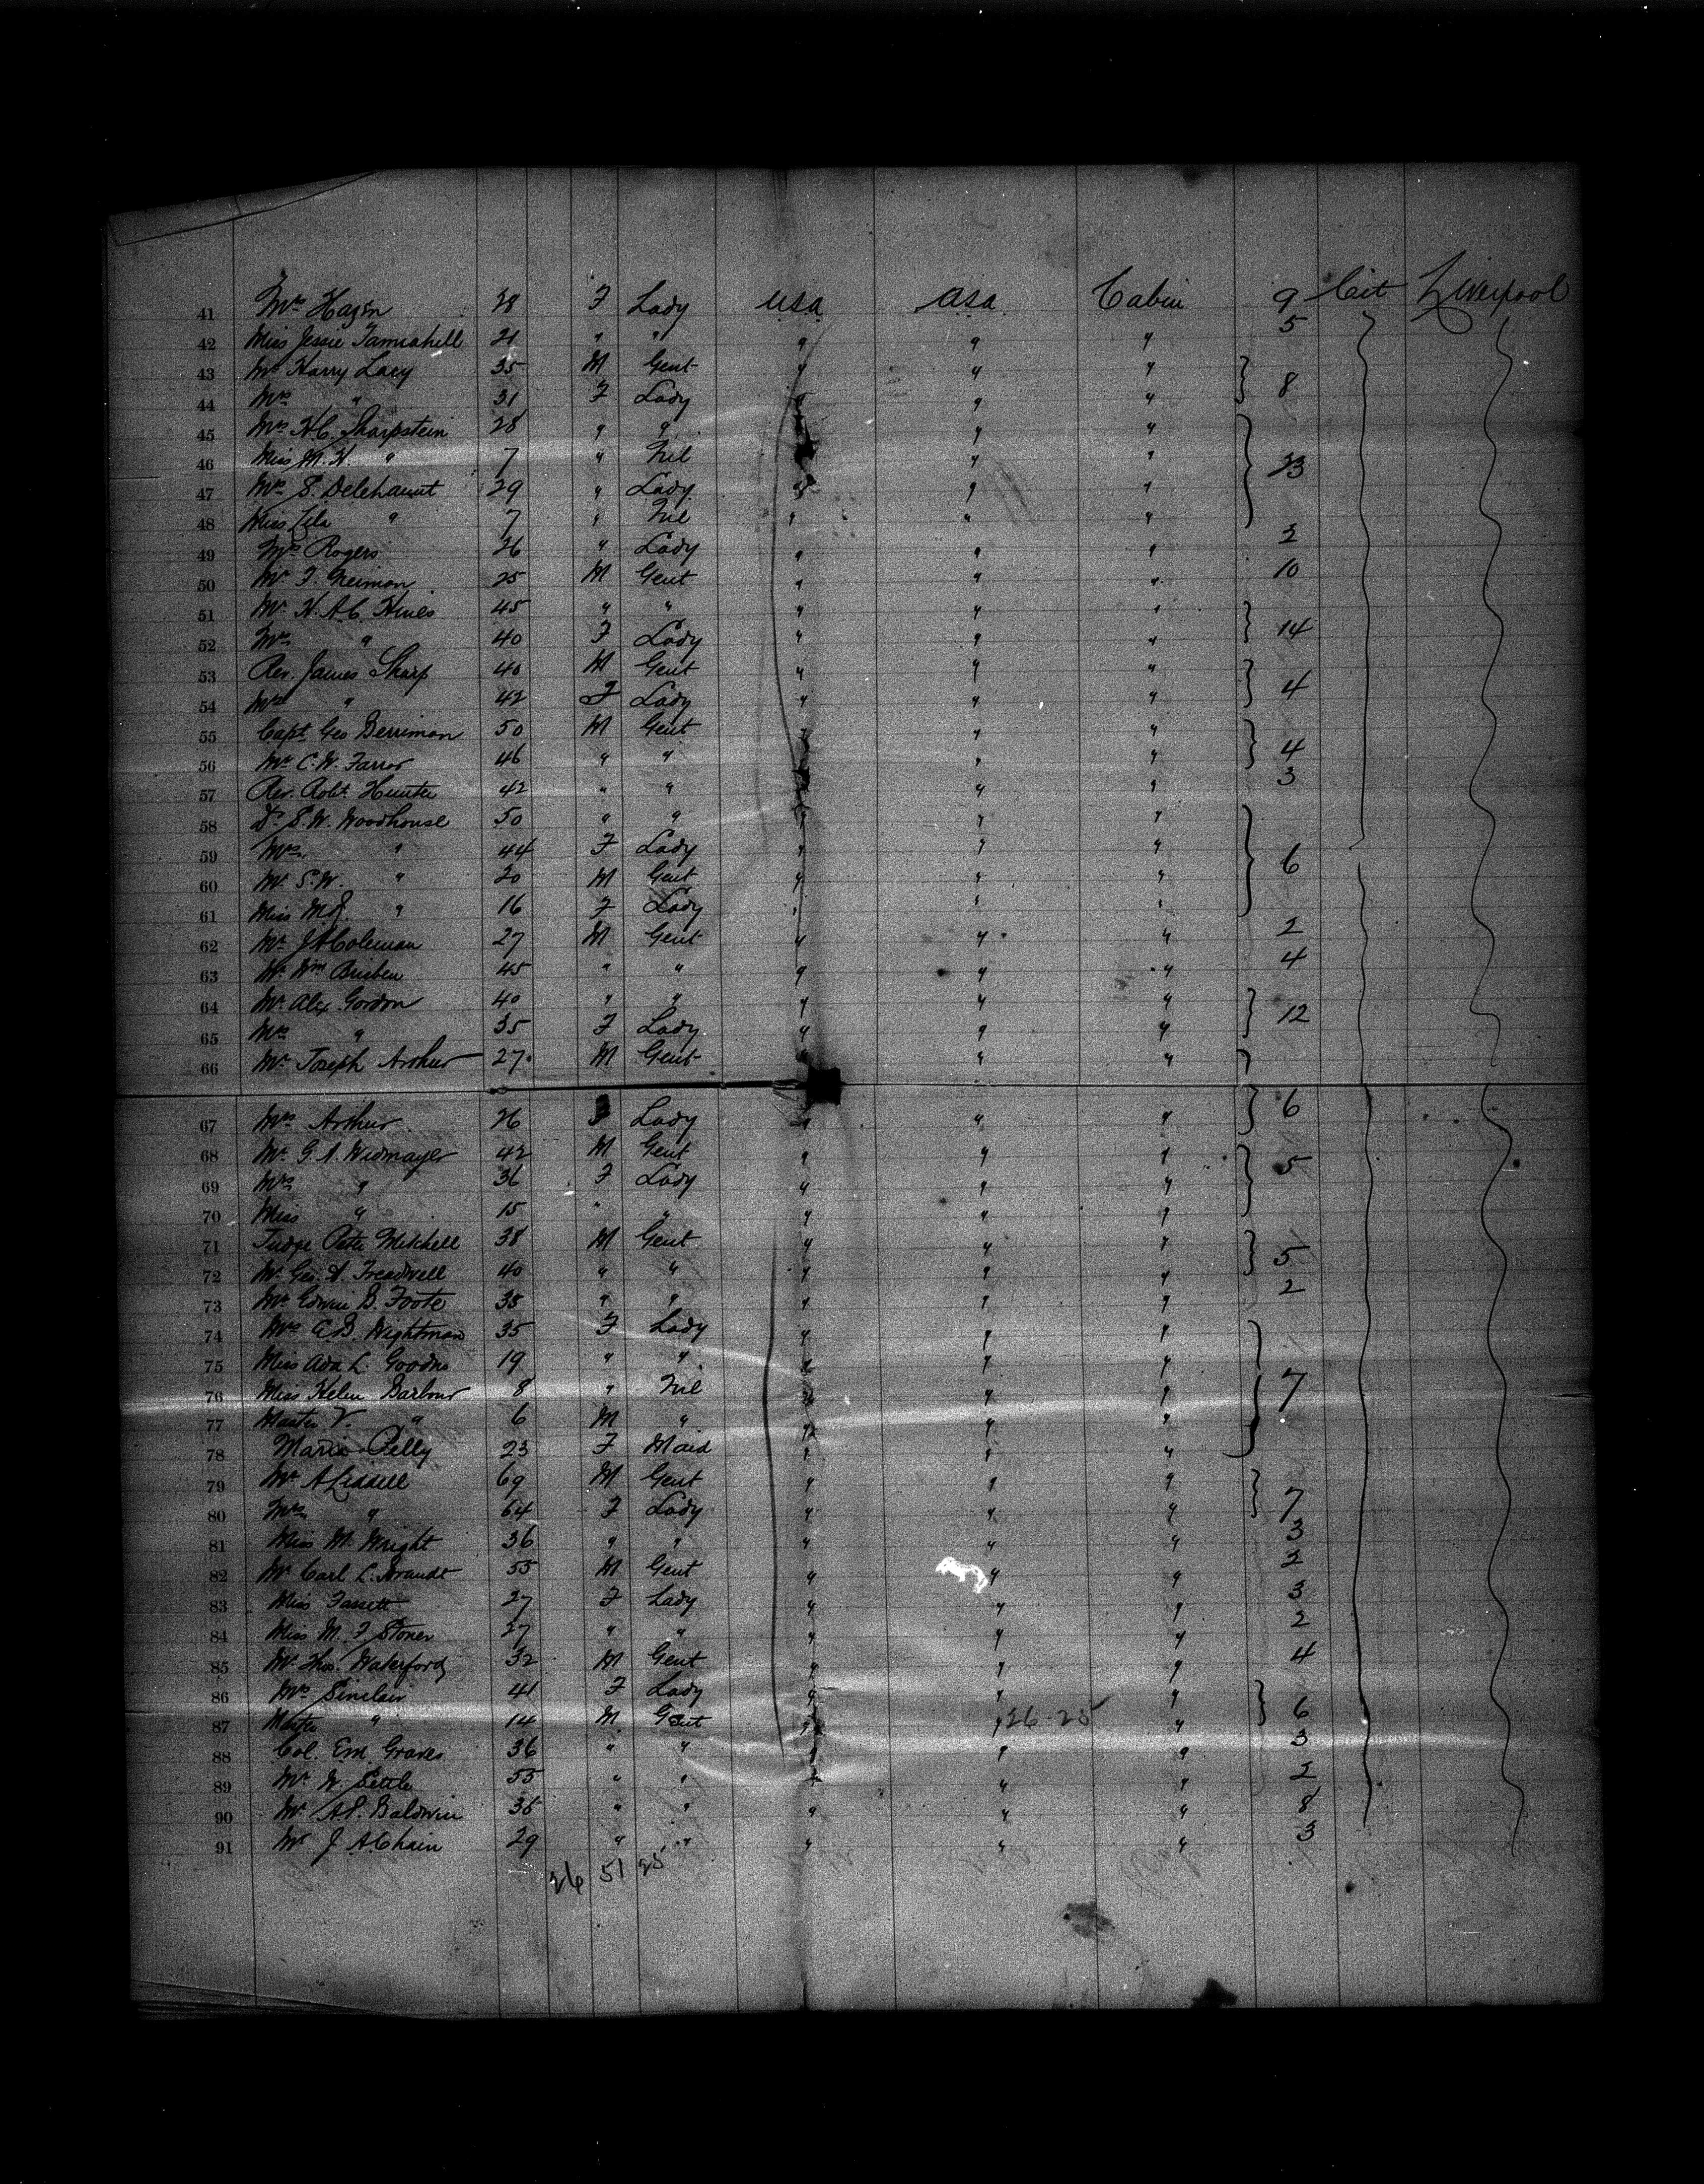 41 Mrs Hazen 28 F Lady USA USA Cabin 9 Cit Liverpool
42 Miss Jessie Tannahill 21 " " " " " 5
43 Mr Harry Lacy 35 M Gent " " " } 8
44 Mrs " 31 F Lady " " "
45 Mrs H.C. Sharpstein 28 " " " " "
46 Miss M.H. " 7 " Nil " " " } 23
47 Mrs S. Delehaunt 29 " Lady " " "
48 Miss Lila " 7 " Nil " " "
49 Mrs Rogers 26 " Lady " " " 2
50 Mr F. Greimon 25 M Gent " " " 10
51 Mr H.A.C. Hines 45 " " " " " } 14
52 Mrs " 40 F Lady " " "
53 Rev. James Sharp 40 M Gent " " " } 4
54 Mrs " 42 F Lady " " "
55 Capt. Geo Berriman 50 M Gent " " " } 4
56 Mr C.W. Farror 46 " " " " "
57 Rev. Robt. Hunter 42 " " " " " 3
58 Dr S.W. Woodhouse 50 " " " " "
59 Mrs. " 44 F Lady " " " } 6
60 Mr. S.W. " 20 M Gent " " "
61 Miss " 16 F Lady " " "
62 Mr J A Coleman 27 M Gent " " " 2
63 Mr Wm Brisben 45 " " " " " 4
64 Mr Alex Gordon 40 " " " " " } 12
65 Mrs " 35 F Lady " " "
66 Mr Joseph Arthur 27 M Gent " " " }
67 Mrs Arthur 26 F Lady " " " } 6
68 Mr G.A. Widmayer 42 M Gent " " " } 5
69 Mrs " 36 F Lady " " "
70 Miss " 15 " " " " "
71 Judge Peter Mitchell 38 M Gent " " " } 5
72 Mr Geo. A. Treadwell 40 " " " " "
73 Mr Edwin B. Foote 38 " " " " " 2
74 Mrs C.B. Wightman 35 F Lady " " " }
75 Miss Ada L. Goodno 19 " " " " "
76 Miss Helen Barbour 8 " Nil " " " } 7
77 Master V. " 6 M " " " "
78 Maria Pelly 23 F Maid " " "
79 Mr A Liddell 69 M Gent " " " } 7
80 Mrs " 64 F Lady " " "
81 Miss M. Wright 36 " " " " " 3
82 Mr Carl L. Brandt 55 M Gent " " " 2
83 Miss Fassett 27 F Lady " " " 3
84 Miss M. F. Stoner 27 " " " " " 2
85 Mr Thos. Waterford 32 M Gent " " " 4
86 Mrs Sinclair 41 F Lady " " " } 6
87 Master " 14 M Gent " " 26-25 "
88 Col. Em. Graves 36 " " " " " 3
89 Mr W. Settle 55 " " " " " 2
90 Mr A.P. Baldwin 36 " " " " " 8
91 Mr J. A Chain 29 " " " " " 3
26 51 25